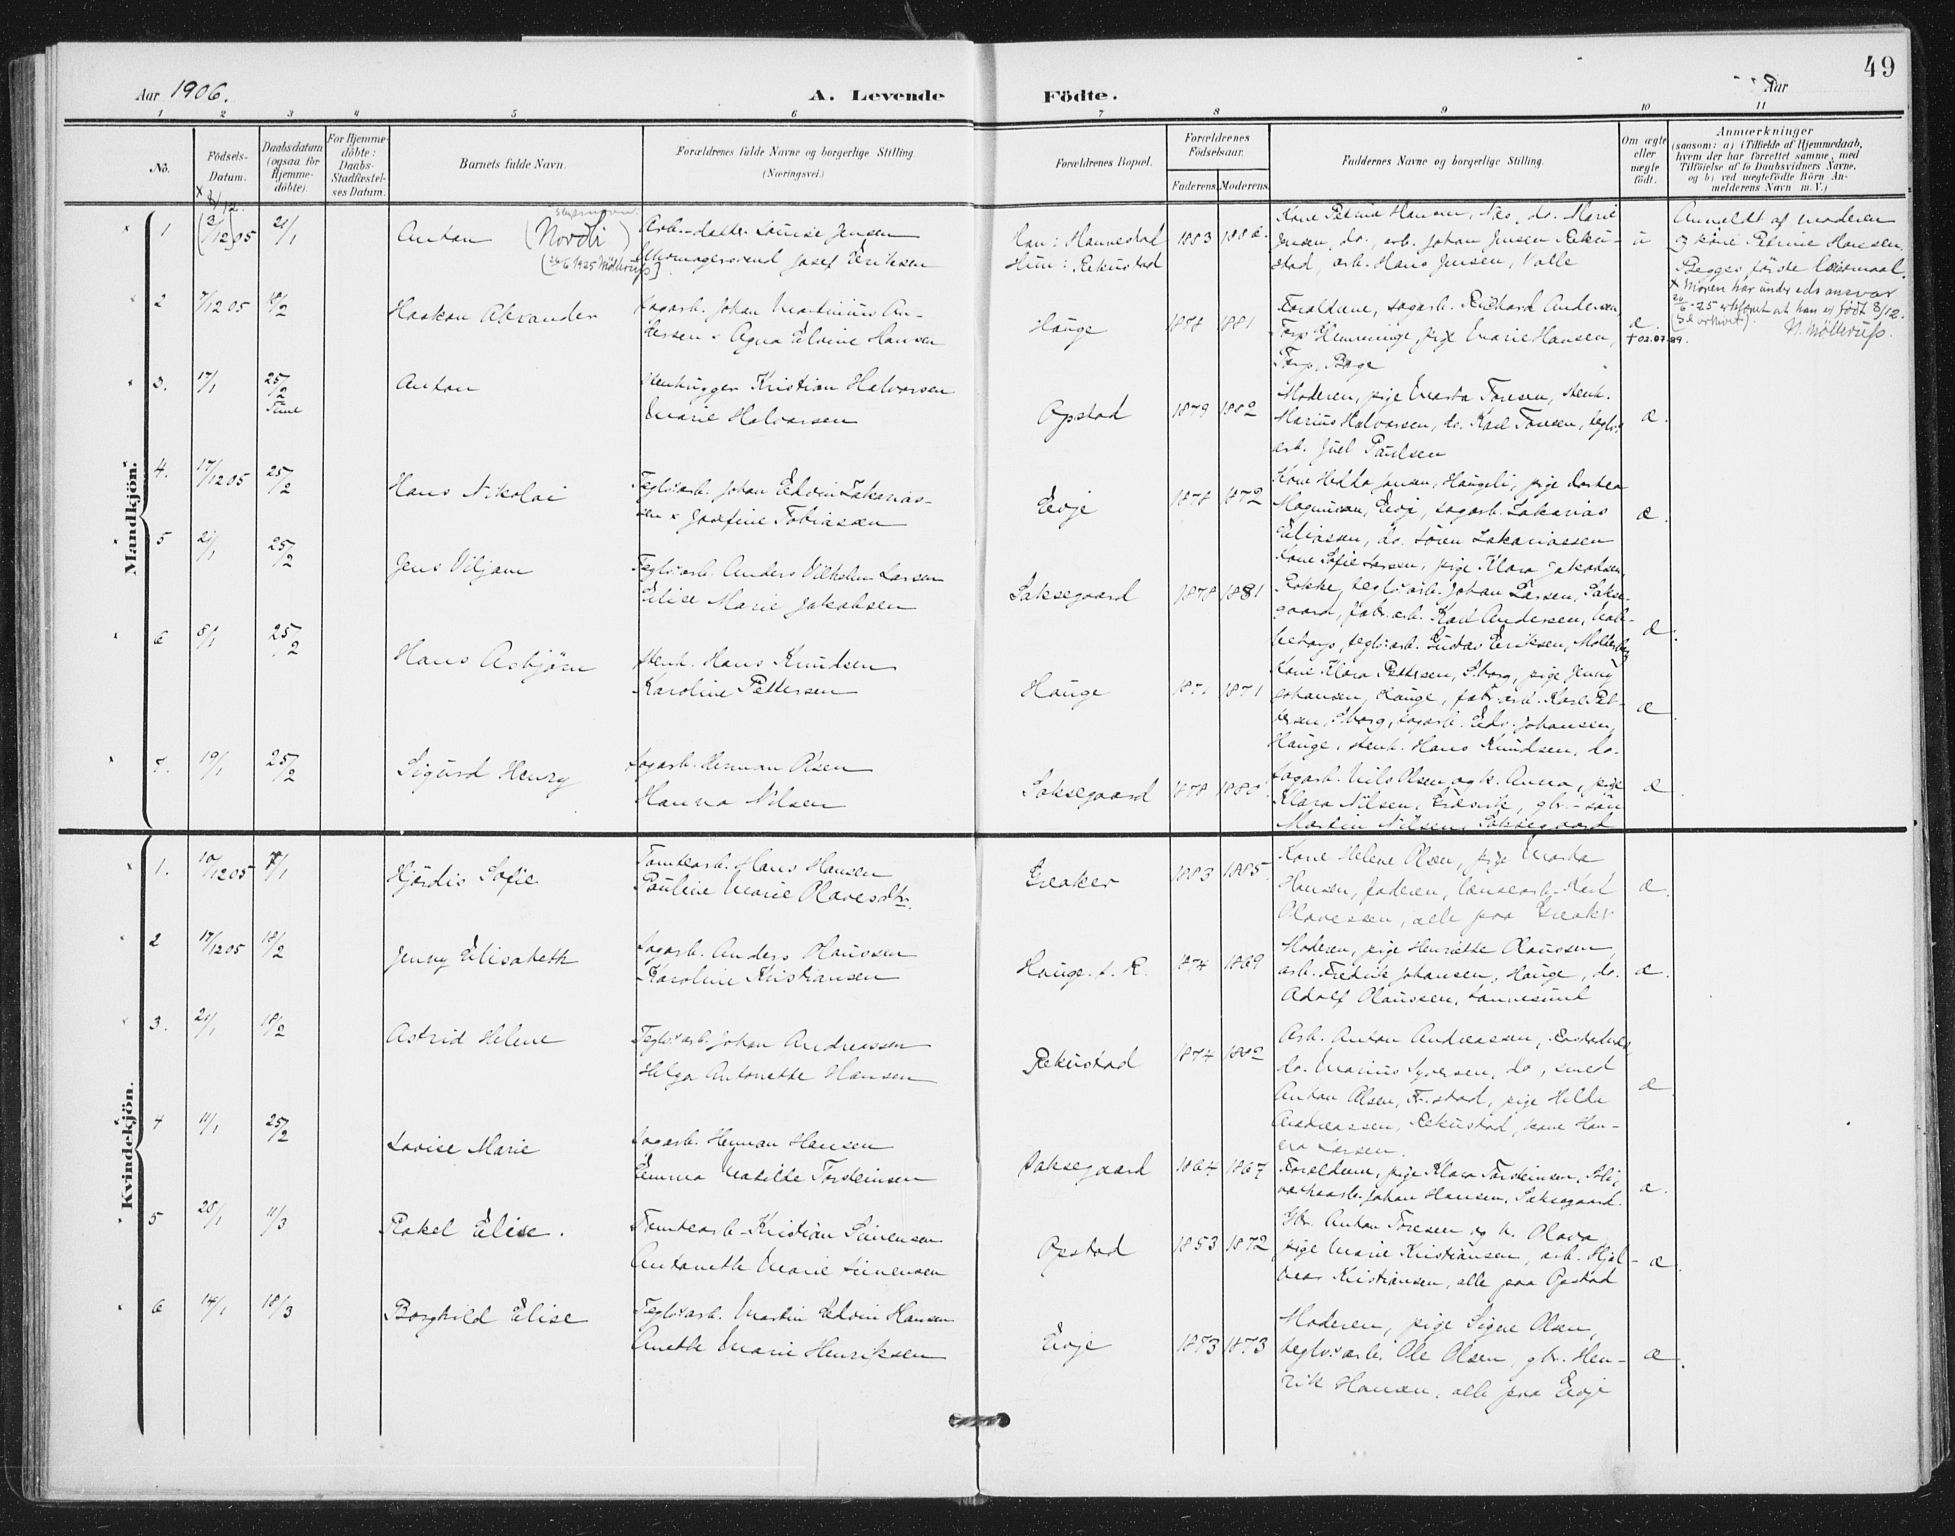 49
Aar 1906.
A. Levende Födte.
Aar
1 2 3 4 5 6 7 8 9 10 11
No.
Födsels-Datum.
Daabsdatum (ogsaa for Hjemme-döbte).
For Hjemme-döbte: Daabs-Stadfæstel-ses Datum.
Barnets fulde Navn.
Forældrenes fulde Navne og borgerlige Stilling.
(Næringsvei.)
Forældrenes Bopæl.
Forældrenes Födselsaar.
Faderens. Moderens.
Faddernes Navne og borgerlige Stilling.
Om ægte eller uægte födt.
Anmærkninger
(saasom: a) (Tilfælde af Hjemmedaab,
hvem der har forrettet samme, med
Tilföielse af to Daabsvidners Navne.
og b) ved uægtefödte Börn An-
melderens Navn m. V.)
Mandkjön.
x 8/12.
1 (3/12 05) 21/1 Anton (Nordli)
(26/6 1925 Møllerup)
Arb.-datter Louise Jensen
Skomagersvend Josef Eriksen
Han: Hannestad
Hun: Rekustad
1883
Kone Petrine Hansen, Næs, do. Marie
Jensen, do., arb. Johan Jensen Reku-
stad, arb. Hans Jensen, Valle
u
Anmeldt af moderen
og kone Petrine Hansen.
Begges første leiermaal.
x Moren har under eds ansvar
26/6-25 erklæret at han er født 8/12.
(Se arkivet). N. Møllerup.
2 7/12 05 18/2 Haakon Alexander
Sagarb. Johan Martinius An-
dersen & Agna Elvine Hansen
Hauge 1878 1881
Forældrene, sagarb. Richard Andersen,
Torp, Hemminge, pige Marie Hansen,
Torp, Borge
æ.
+ 02.07.89.
3. 17/1 25/2 Anton
Stenhugger Kristian Halvorsen
Marie Halvorsen
Opstad 1879 1882
Moderen, pige Marta Toresen, stenh.
Marius Halvorsen, do. Karl Toresen, teglv.-
arb. Juel Paulsen
æ.
4. 17/12 05 25/2 Hans Nikolai
Teglv.arb. Johan Edvin Sakarias-
sen & Josefine Tobiassen
Evje 1878 1872
Kone Hedda Jensen, Haugeli, pige Dortea
Magnussen, Evje, sagarb. Sakarias
Eliassen, do. Søren Sakariassen
æ.
5 21/1 25/2 Jens Viljam
Teglv.arb. Anders Vilhelm Larsen
Elise Marie Jakobsen
Saksegaard 1878 1881
Kone Sofie Larsen, pige Klara Jakobsen,
Rokke, teglv.arb. Johan Larsen, Sakse-
gaard, fabr.arb. Karl Andersen,
teglv.arb. Gustav Eriksen,
æ.
6 5/1 25/2 Hans Asbjörn
Stenh. Hans Knudsen
Karoline Pettersen
Hauge 1871 1871
Kone Klara Pettersen, S.borg, pige Jenny
Johansen, Hauge, fabr.arb. Karl Pet-
tersen, S.borg, sagarb. Edv. Johansen,
Hauge, stenh. Hans Knudsen, do.
æ
7. 19/1 25/2 Sigurd Henry
Sagarb. Herman Olsen
Hanna Nilsen
Saksegaard 1878 1880
Sagarb. Nils Olsen og k. Anna, pige
Klara Nilsen, gbr.-søn
Martin Nilsen, Saksegaard
æ.
Kvindekjön.
1. 10/12 05 7/1 Hjördis Sofie
Tomtearb. Hans Hansen
Pauline Marie Olavesdtr.
Greaker 1883 1885
Kone Helene Olsen, pige Marta
Hansen, faderen, lænsearb. Karl
Olavessen, alle paa Greaker
æ.
2 17/12 05 18/2 Jenny Elisabeth
Sagarb. Anders Olaussen
Karoline Kristiansen
Hauge i. R. 1874 1869
Moderen, pige Henriette Olaussen,
arb. Fredrik Johansen, Hauge, do.
Adolf Olaussen, Sannesund
æ.
3. 21/1 18/2 Astrid Helene
Teglv.arb. Johan Andreassen
Helga Antonette Hansen
Rekustad 1874 1882
Arb. Anton Andreassen,
do. Marius Syversen, do, smed
Anton Olsen, Fr.stad, pige Hilda
Andreassen, Rekustad, kone Han-
na Larsen.
æ
4 11/1 25/2 Lovise Marie
Sagarb. Herman Hansen
Emma Matilde Torsteinsen
Saksegaard 1864 1867
Forældrene, pige Klara Torsteinsen,
Johan Hansen, Saksegaard.
æ.
5 28/1 11/3 Rakel Elise.
Tomtearb. Kristian Simensen
Antonette Marie Simensen
Opstad 1853 1872
Gbr. Anton Toresen og k. Olava
pige Marie Kristiansen, arb. Hjal-
mar Kristiansen, alle paa Opstad
æ.
6 14/1 18/3 Borghild Elise
Teglv.arb. Martin Edvin Hansen
Anette Marie Henriksen
Evje 1873 1873
Moderen, pige Signe Olsen,
teglv.arb. Ole Olsen, gbr. Hen-
rik Hansen, alle paa Evje
æ.